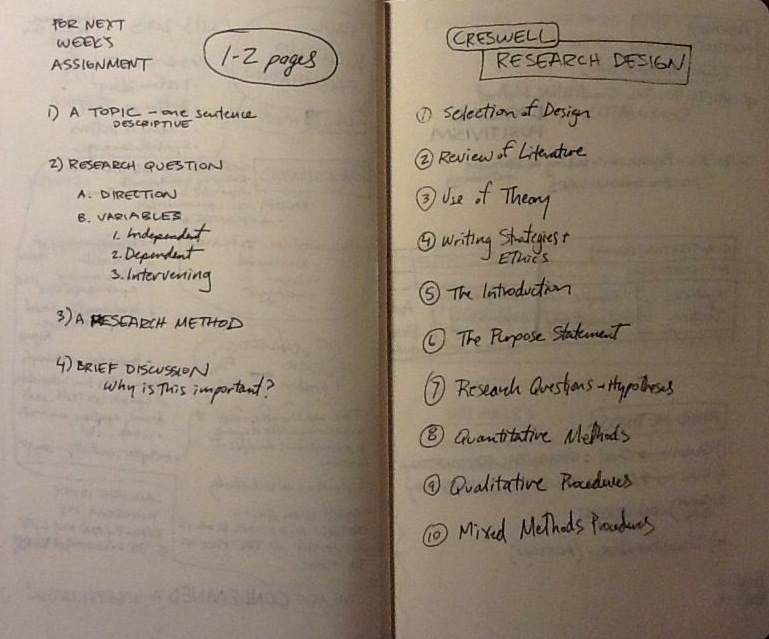 FOR NEXT
WEEK'S
ASSIGNMENT
1-2 pages
1) A TOPIC - one sentence
DESCRIPTIVE
2) RESEARCH QUESTION
A. DIRECTION
B. VARIABLES
1. Independent
2. Dependent
3. Intervening
3) A RESEARCH METHOD
4) BRIEF DISCUSSION
Why is this important?
CRESWELL
RESEARCH DESIGN
1 Selection of Design
2 Review of Literature
3 Use of Theory
4 Writing Strategies +
ETHICS
5 The Introduction
6 The Purpose Statement
7 Research Questions + Hypotheses
8 Quantitative Methods
9 Qualitative Procedures
10 Mixed Methods Procedures